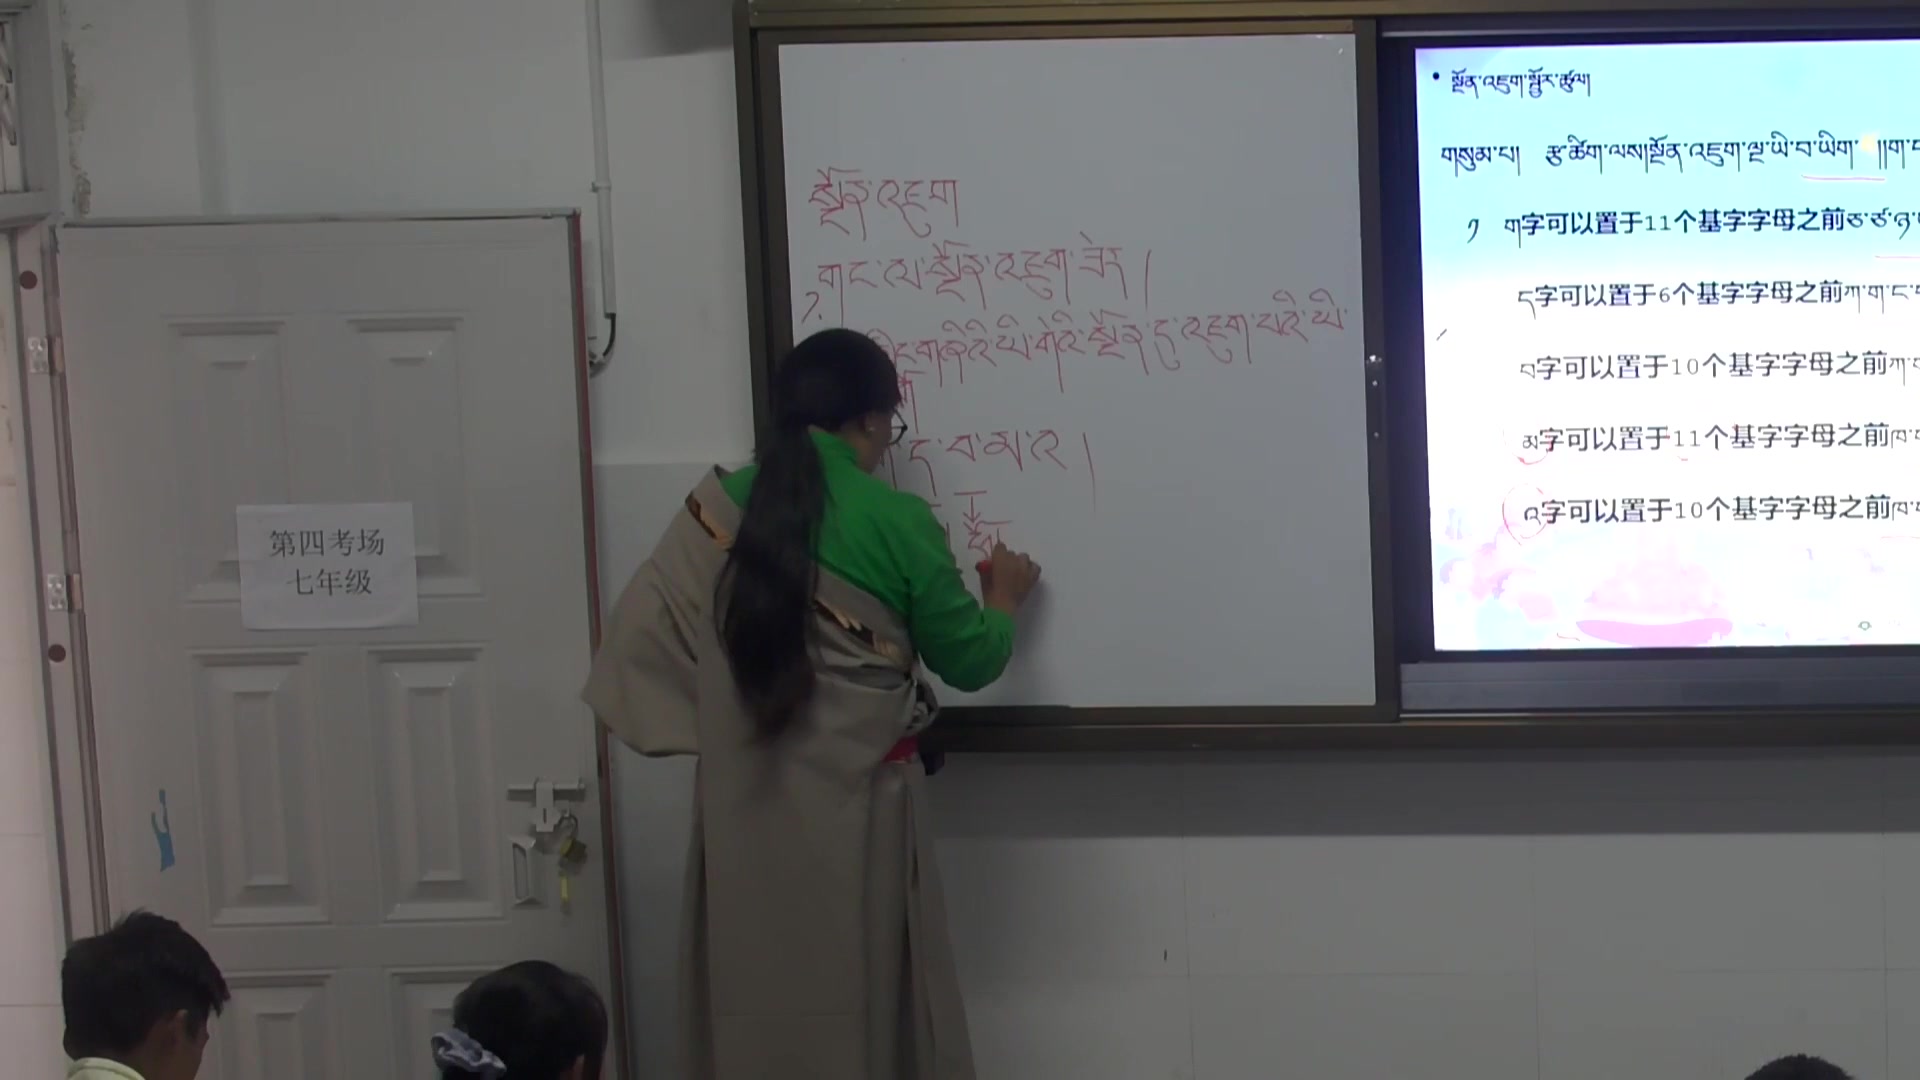 第四考场
七年级
སྔོན་འཇུག
གང་ལ་སྔོན་འཇུག་ཟེར།
༡.
སྔོན་དུ་འཇུག་པའི་ཡི་
ད་བ་མ་འ།
• སྔོན་འཇུག་སྦྱོར་ཚུལ།
གསུམ་པ། རྩ་ཚིག་ལས།སྔོན་འཇུག་ལྔ་ཡི་བ་ཡིག་ །།ག་
༡ ག字可以置于11个基字字母之前ཅ་ཙ་ཉ་
ད字可以置于6个基字字母之前ཀ་ག་ང་
བ字可以置于10个基字字母之前ཀ་
མ字可以置于11个基字字母之前ཁ་
འ字可以置于10个基字字母之前ཁ་